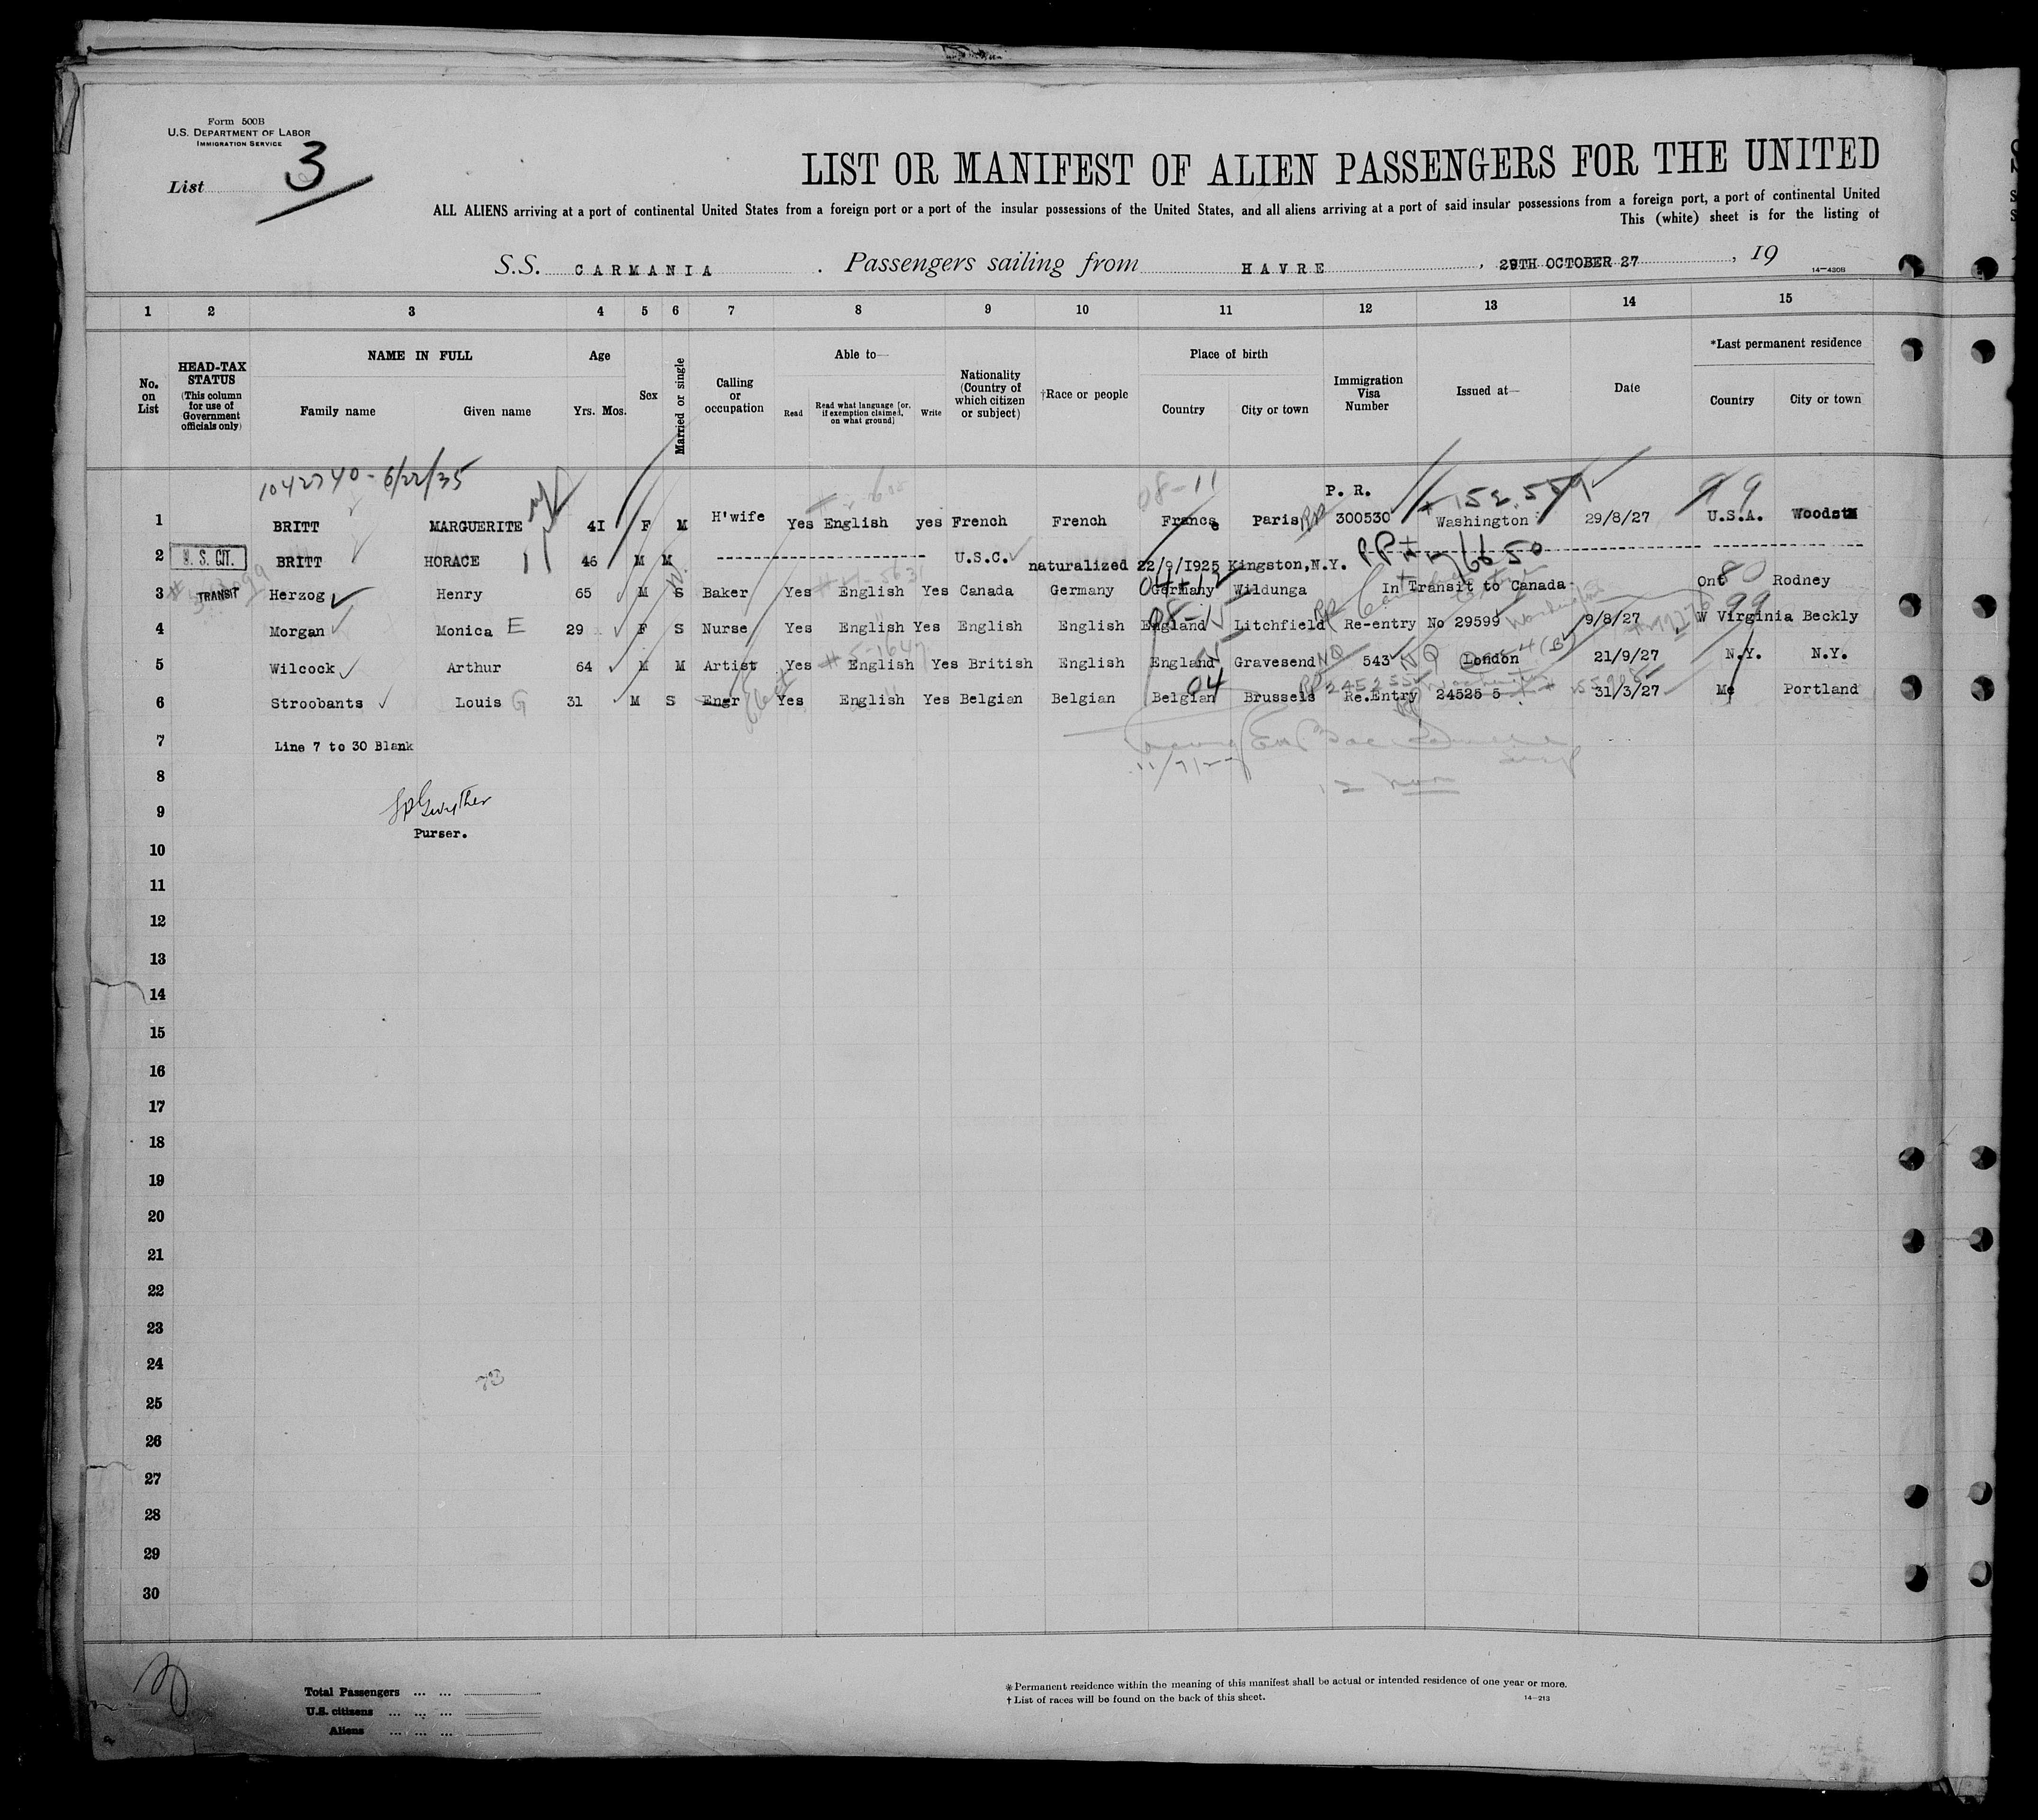 Form 500B
U.S. DEPARTMENT OF LABOR
IMMIGRATION SERVICE
List 3
LIST OR MANIFEST OF ALIEN PASSENGERS FOR THE UNITED
ALL ALIENS arriving at a port of continental United States from a foreign port or a port of the insular possessions of the United States, and all aliens arriving at a port of said insular possessions from a foreign port, a port of continental United
This (white) sheet is for the listing of
S.S. CARMANIA. Passengers sailing from HAVRE, 29TH OCTOBER 27, 19
14—430B
1 2 3 4 5 6 7 8 9 10 11 12 13 14 15
No. on List
HEAD-TAX STATUS (This column for use of Government officials only)
NAME IN FULL Family name Given name
Age Yrs. Mos.
Sex
Married or single
Calling or occupation
Able to— Read Read what language [or, if exemption claimed, on what ground] Write
Nationality (Country of which citizen or subject)
†Race or people
Place of birth Country City or town
Immigration Visa Number
Issued at—
Date
*Last permanent residence Country City or town
1042740-6/22/35
08-11 P. R. 152.559 99
1 BRITT MARGUERITE 41 F M H'wife Yes English yes French French France Paris 300530 Washington 29/8/27 U.S.A. Woodst
2 U. S. CIT. BRITT HORACE 46 M M U.S.C. naturalized 22/9/1925 Kingston, N.Y.
3 TRANSIT Herzog Henry 65 M S Baker Yes English Yes Canada Germany Germany Wildunga In Transit to Canada Ont 80 Rodney
4 Morgan Monica E 29 F S Nurse Yes English Yes English English England Litchfield Re-entry No 29599 9/8/27 W Virginia Beckly
5 Wilcock Arthur 64 M M Artist Yes English Yes British English England Gravesend 543 NQ London 21/9/27 N.Y. N.Y.
6 Stroobants Louis G 31 M S Engr Yes English Yes Belgian Belgian Belgian Brussels Re.Entry 24525 5 31/3/27 Me Portland
7 Line 7 to 30 Blank
8
9
Purser.
10
11
12
13
14
15
16
17
18
19
20
21
22
23
24
73
25
26
27
28
29
30
Total Passengers ... ...
U.S. citizens ... ... ...
Aliens ... ... ...
* Permanent residence within the meaning of this manifest shall be actual or intended residence of one year or more.
† List of races will be found on the back of this sheet.
14—213